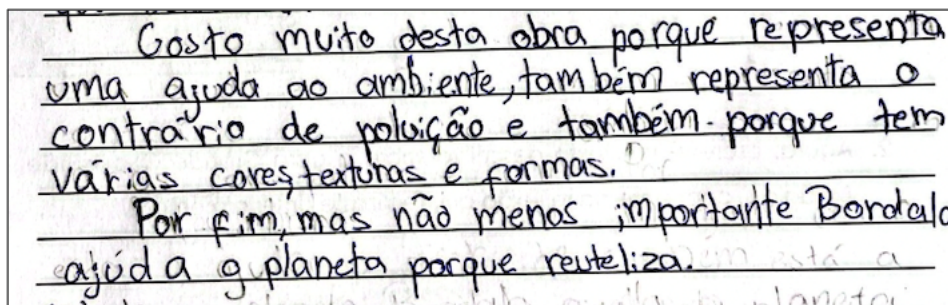 Gosto muito desta obra porque representa
uma ajuda ao ambiente, também representa o
contrário de poluição e também porque tem
várias cores, texturas e formas.
Por fim, mas não menos importante Bordalo
ajuda o planeta porque reuteliza.